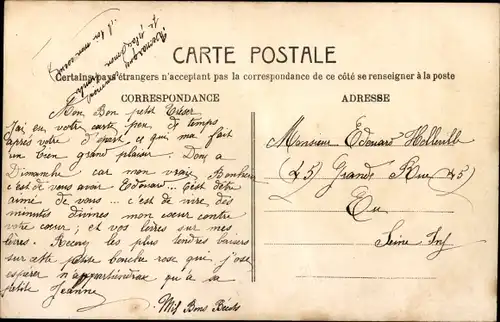 CARTE POSTALE
Certains pays étrangers n'acceptant pas la correspondance de ce côté se renseigner à la poste
CORRESPONDANCE
ADRESSE
Mon Bon petit
J'ai eu votre carte peu de temps
après votre départ ce qui ma fait
un bien grand plaisir. Donc a
Dimanche car mon vrai Bonheur
c'est de vous avoir Edouard... C'est d'être
aimé de vous ... c'est de vivre, des
minutes divines mon cœur contre
votre cœur; et vos lèvres sur mes
lèvres. Recevez les plus tendres baisers
sur cette petite bouche rose que j'ose
espérer n'appartiendrae qu'à sa
petite Jeanne
Mil Bons
Monsieur Edouard
(45) Grande Rue (45)
Eu
Seine Inf